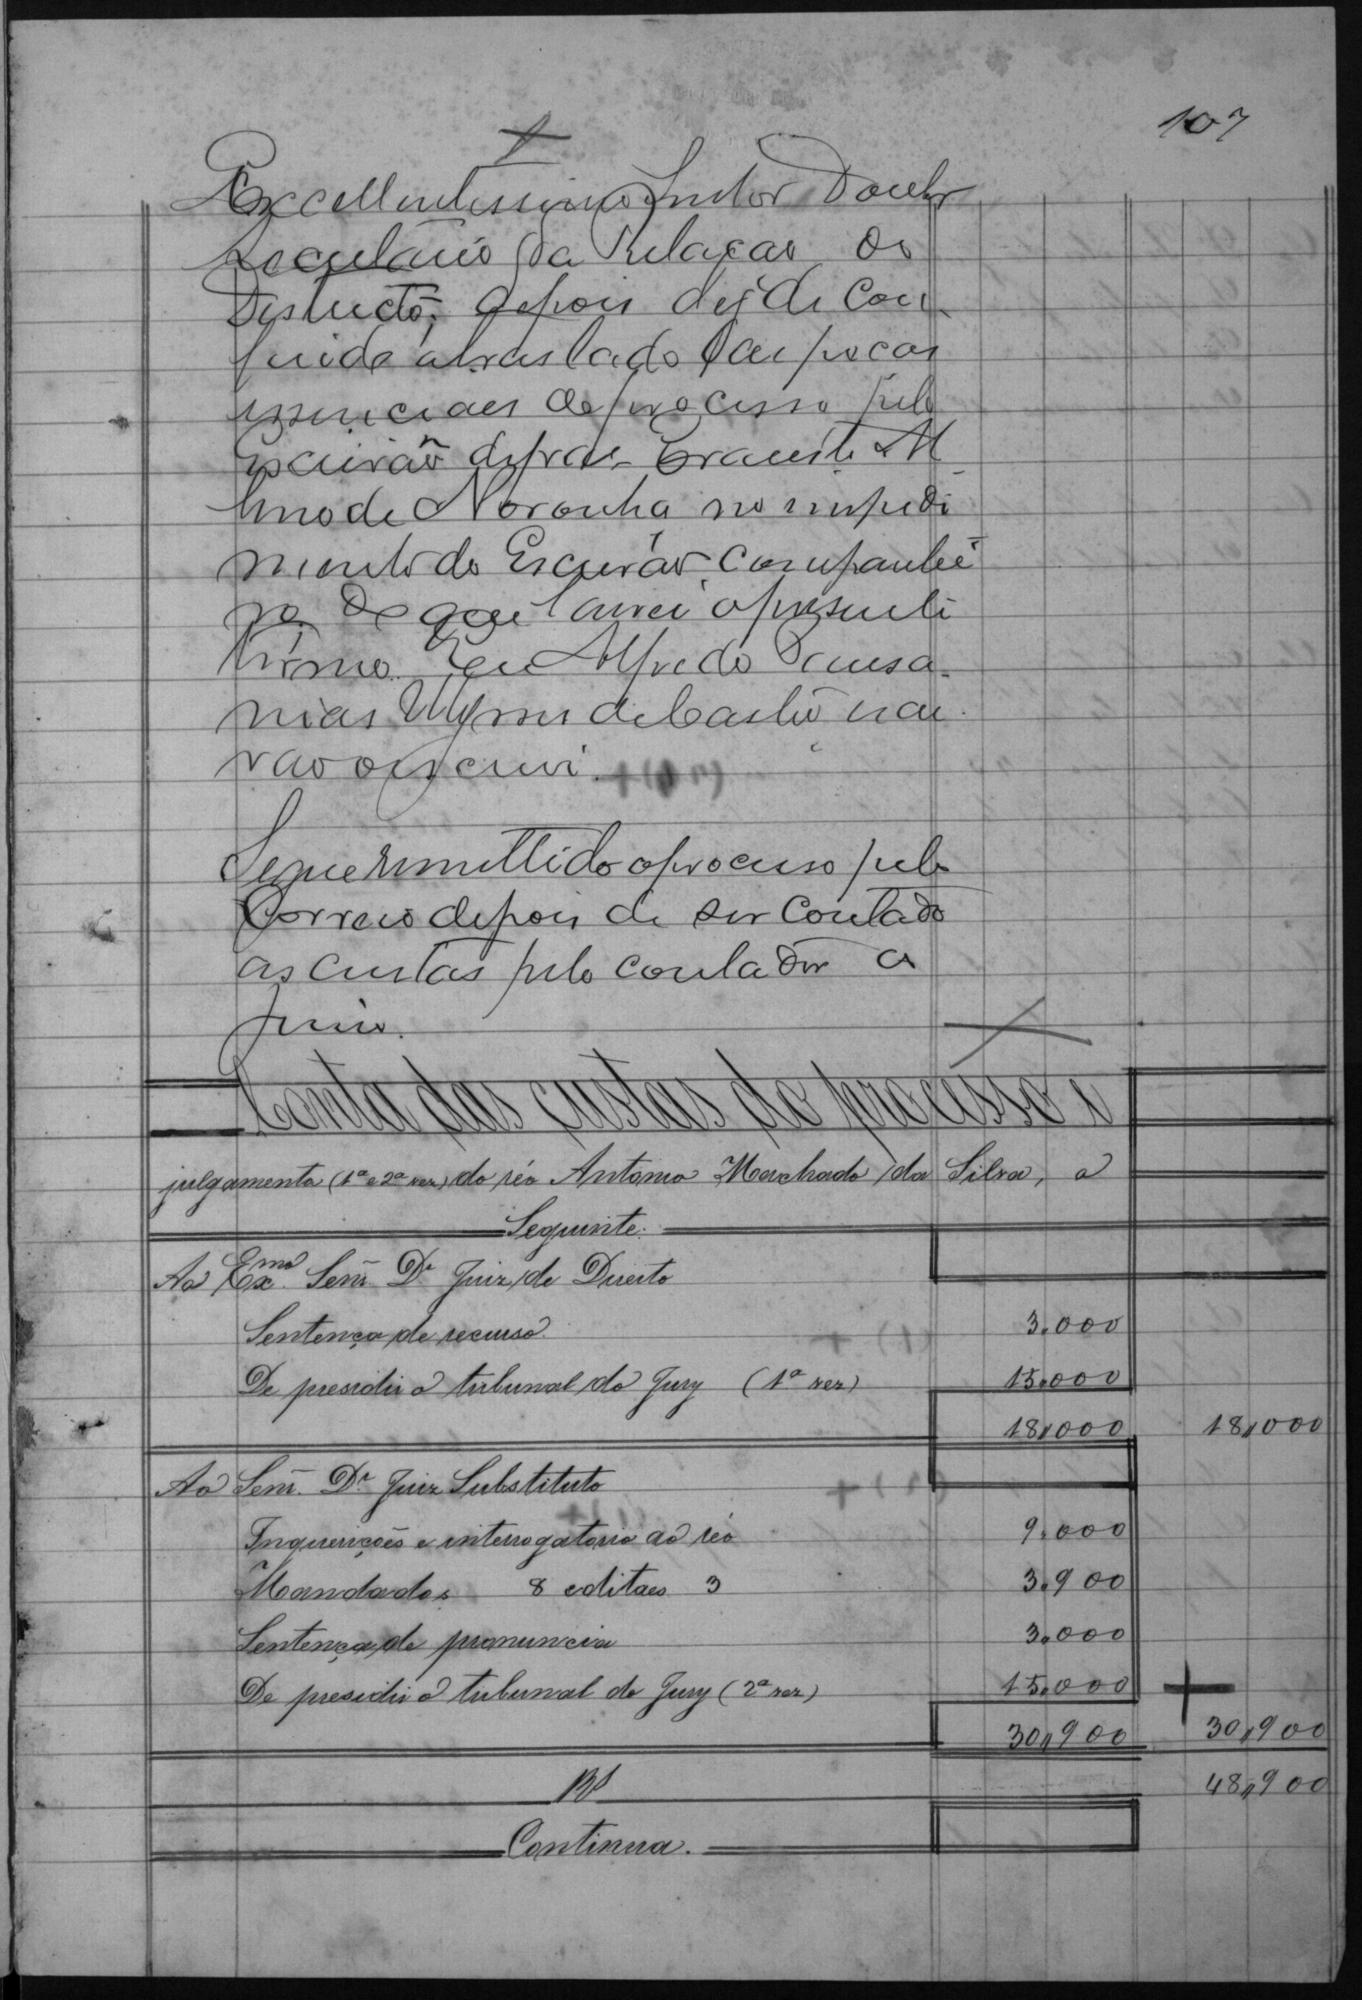 107
Excellentissimo Senhor Doutor
Secretario da Relação do
Districto, depois de
traslado das peças
essenciaes do processo pelo
Escrivão
de Noronha no impedi
mento do Escrivão companhei
ro. De que lavrei o presente
termo. Eu Alfredo Pausa
nias de Castro escri
vão o escrevi.
Segue remettido o processo pelo
Correio depois de ser contado
as custas pelo contador do
juiso.
Conta das custas do processo e
julgamento (1ª e 2ª vez) do réo Antonio Machado da Silva, o
Seguinte:
Ao Exmo Senr. Dr Juiz de Direito
Sentença de recurso 3.000
De presidir o tribunal do Jury (1ª vez) 15.000
18,000 18,000
Ao Senr. Dr Juiz Substituto
Inquerições e interrogatorio ao réo 9.000
Mandados 8 editaes 3 3.900
Sentença de pronuncia 3.000
De presidir o tribunal do Jury (2ª vez) 15.000
30,900 30,900
RS 48,900
Continua.